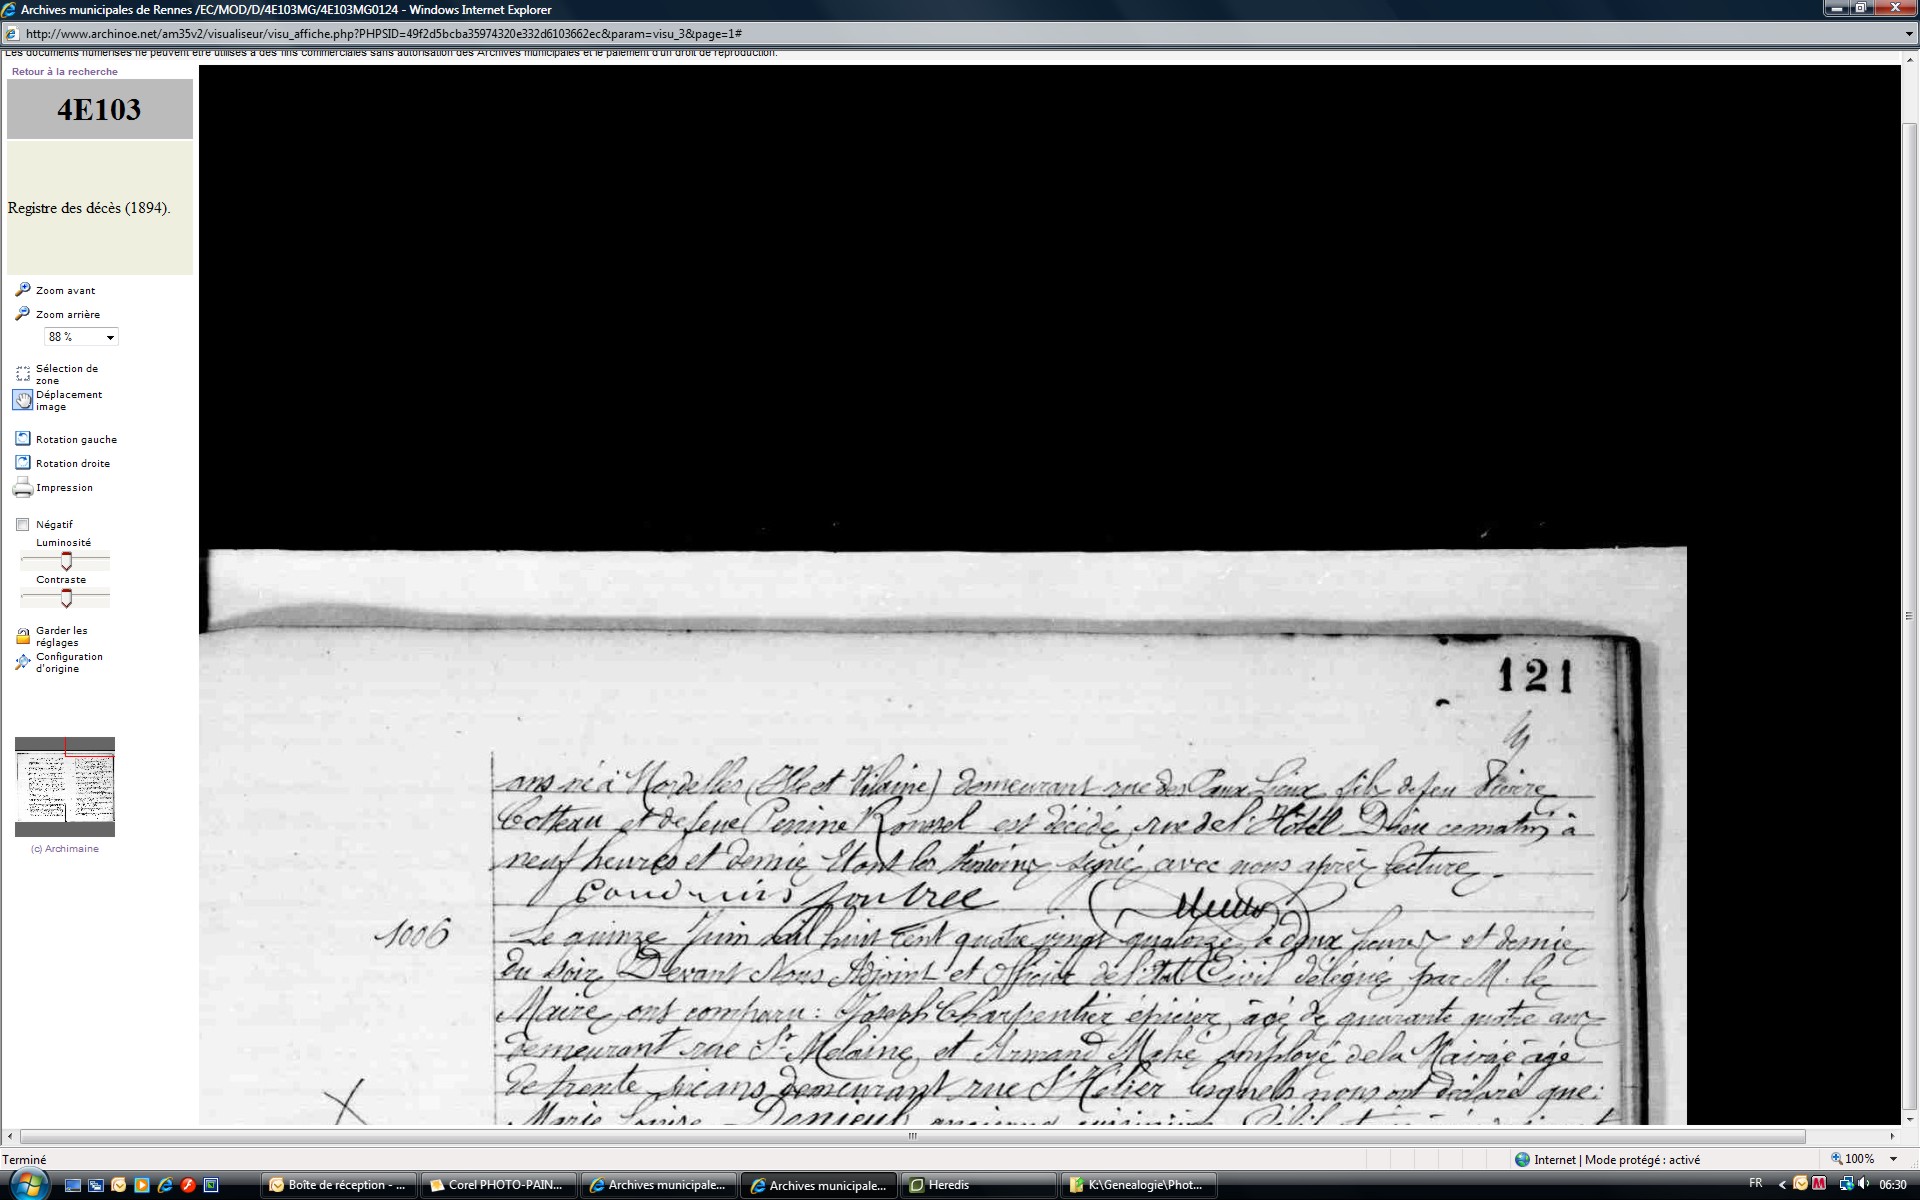 Archives municipales de Rennes /EC/MOD/D/4E103MG/4E103MG0124 - Windows Internet Explorer
http://www.archinoe.net/am35v2/visualiseur/visu_affiche.php?PHPSID=49f2d5bcba35974320e332d6103662ec&param=visu_3&page=1#
Les documents numérisés ne peuvent être utilisés à des fins commerciales sans autorisation des Archives municipales et le paiement d'un droit de reproduction.
Retour à la recherche
4E103
Registre des décès (1894).
Zoom avant
Zoom arrière
88 %
Sélection de
zone
Déplacement
image
Rotation gauche
Rotation droite
Impression
Négatif
Luminosité
Contraste
Garder les
réglages
Configuration
d'origine
(c) Archimaine
121
ans né à Mordelles (Ille et Vilaine) demeurant rue des fils de feu Pierre
Cotteau et de feue Perrine Roussel est décédé, rue de l'Hôtel Dieu ce matin à
neuf heures et demie Etant les témoins signé avec nous après lecture.
1006
Le quinze Juin mil huit cent quatre vingt quatorze à deux heures et demie
du soir Devant Nous Adjoint et Officier de l'Etat Civil délégué par M. le
Maire, ont comparu : Joseph Charpentier épicier, âgé de quarante quatre ans
demeurant rue St Melaine, et Armand Mahé employé de la Mairie âgé
de trente six ans demeurant rue St Hélier lesquels nous ont déclaré que:
Marie Louise
Terminé
Internet | Mode protégé : activé
100%
Boîte de réception - ...
Corel PHOTO-PAIN...
Archives municipale...
Archives municipale...
Heredis
K:\Genealogie\Phot...
FR
06:30